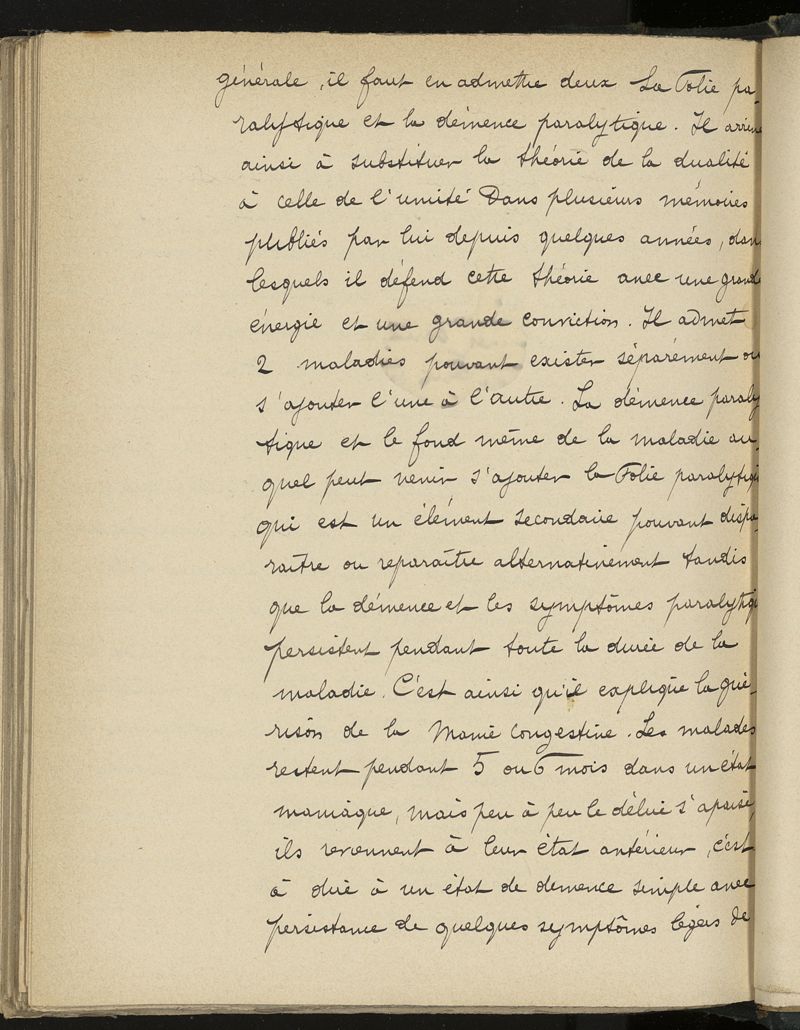 générale, il faut en admettre deux La Folie pa-
ralytique et la démence paralytique. Il arrive
ainsi à substituer la théorie de la dualité
à celle de l'unité Dans plusieurs mémoires
publiés par lui depuis quelques années, dans
lesquels il défend cette théorie avec une grande
énergie et une grande conviction. Il admet
2 maladies pouvant exister séparément ou
s'ajouter l'une à l'autre. La démence paraly
tique et le fond même de la maladie au-
quel peut venir s'ajouter la Folie paralytiq
qui est un élément secondaire pouvant dispa-
raître ou reparaître alternativement tandis
que la démence et les symptômes paralytiq
persistent pendant toute la durée de la
maladie. C'est ainsi qu'il explique la gué-
rison de la Manie Congestive. Les malades
restent pendant 5 ou 6 mois dans un état
maniaque, mais peu à peu le délire s'apaise,
ils reviennent à leur état antérieur, c'est
à dire à un état de demence simple avec
persistance de quelques symptômes légers de